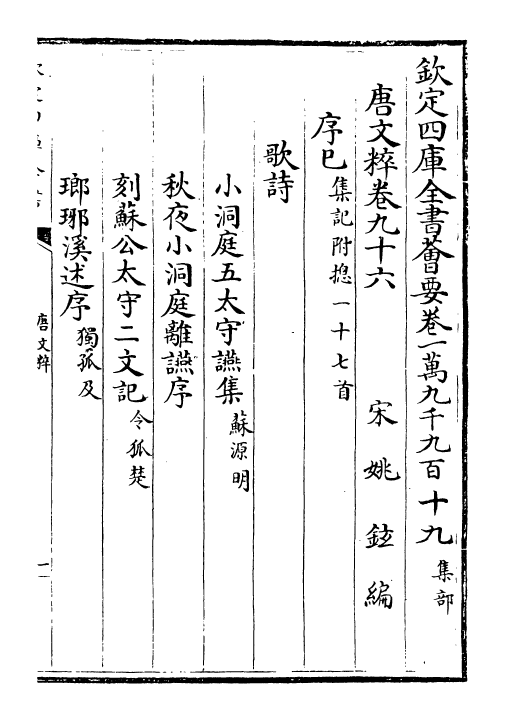 欽定四庫全書薈要卷一萬九千九百十九 集部
唐文粹卷九十六 宋 姚鉉 編
序巳 集記附揔一十七首
歌詩
小洞庭五太守讌集 蘇源明
秋夜小洞庭離讌序
刻蘇公太守二文記 令狐楚
瑯琊溪述序 獨孤及
唐文粹
一